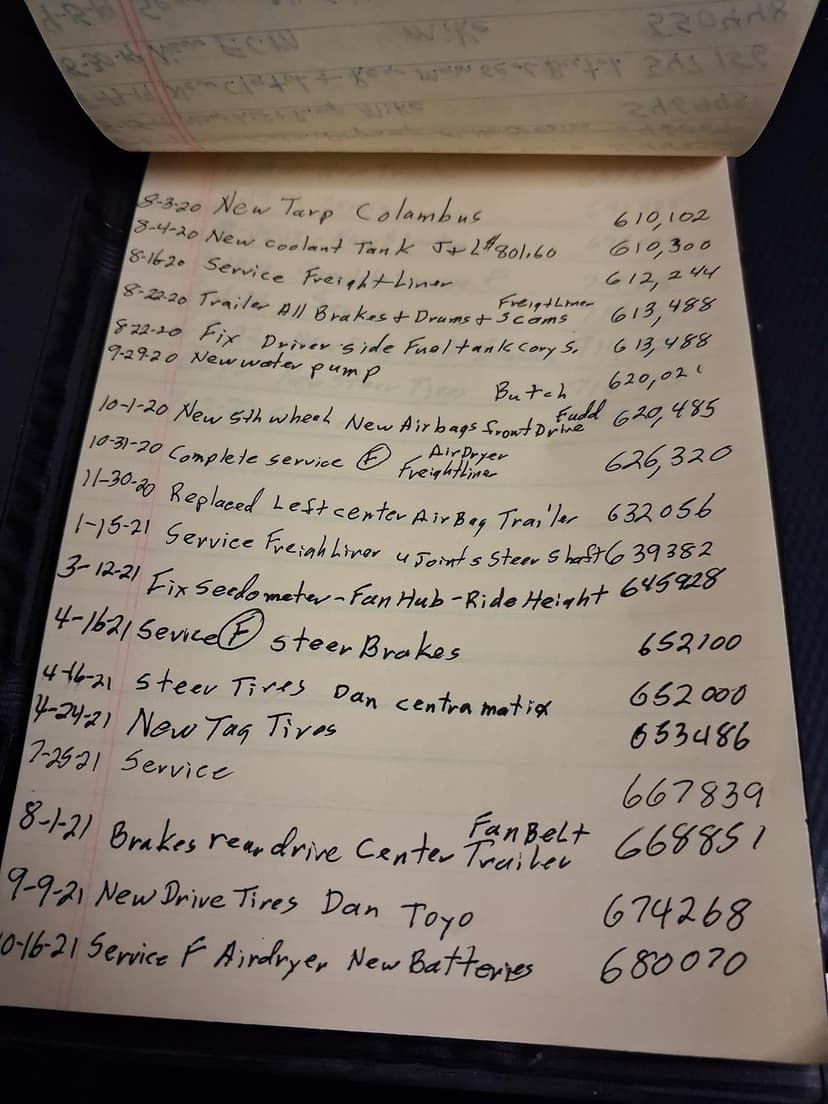 mike 550448
8-30-19 New ECM
547156
8-3-20 New Tarp Colambus 610,102
8-4-20 New coolant Tank J+L $801.60 610,300
8-16-20 Service Freightliner 612,244
8-22-20 Trailer All Brakes + Drums + Scams FreigtLiner 613,488
8-22-20 Fix Driver side Fuel tank Cory S. 613,488
9-29-20 New water pump Butch 620,021
10-1-20 New 5th wheel New Airbags front Drive Fudd 620,485
10-31-20 Complete service F AirDryer Freightliner 626,320
11-30-20 Replaced Left center Air Bag Trailer 632056
1-15-21 Service FreighLiner u Joints Steer Shaft 639382
3-12-21 Fix Seedometer - Fan Hub - Ride Height 645928
4-16-21 Sevice F steer Brakes 652100
4-16-21 Steer Tires Dan centramatix 652000
4-24-21 New Tag Tires 653486
7-25-21 Service 667839
8-1-21 Brakes rear drive Center Fan Belt Trailer 668851
9-9-21 New Drive Tires Dan Toyo 674268
0-16-21 Service F Airdryer New Batteries 680070